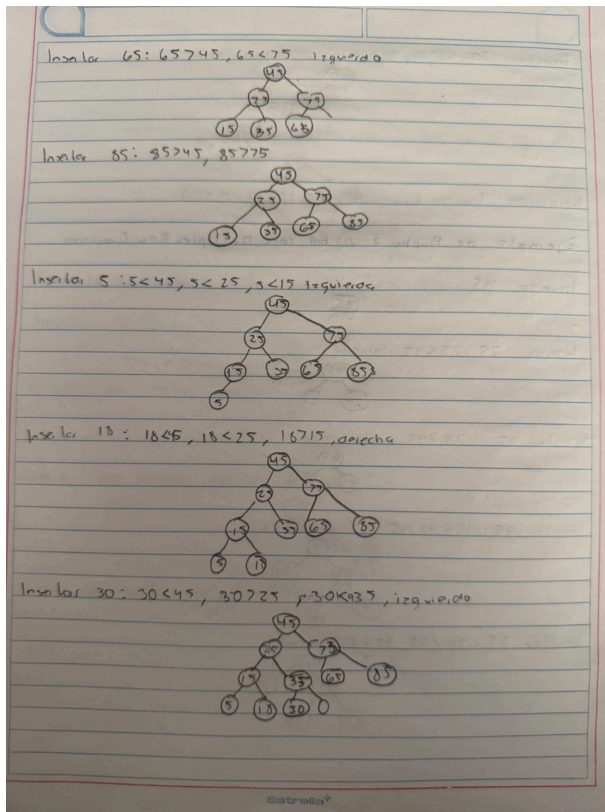 Insertar 65: 65>45, 65<75 izquierda
45
25 75
15 35 65
Insertar 85: 85>45, 85>75
45
25 75
15 35 65 85
Insertar 5: 5<45, 5<25, 5<15 Izquierda
45
25 75
15 35 65 85
5
Insertar 18: 18<45, 18<25, 18>15, derecha
45
25 75
15 35 65 85
5 18
Insertar 30: 30<45, 30>25, 30<35, izquierda
45
25 75
15 35 65 85
5 18 30
Estrella